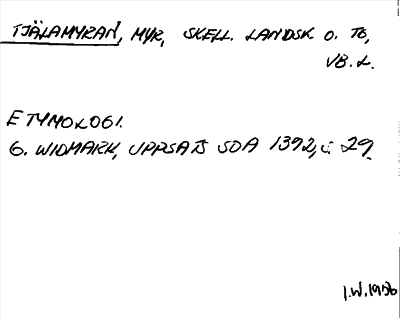 TJÄLAMYRAN, MYR, SKELL. LANDSK O. TB,
VB. L.
ETYMOLOGI.
G. WIDMARK, UPPSATS SOA 1392, s. 29.
I.W. 1956